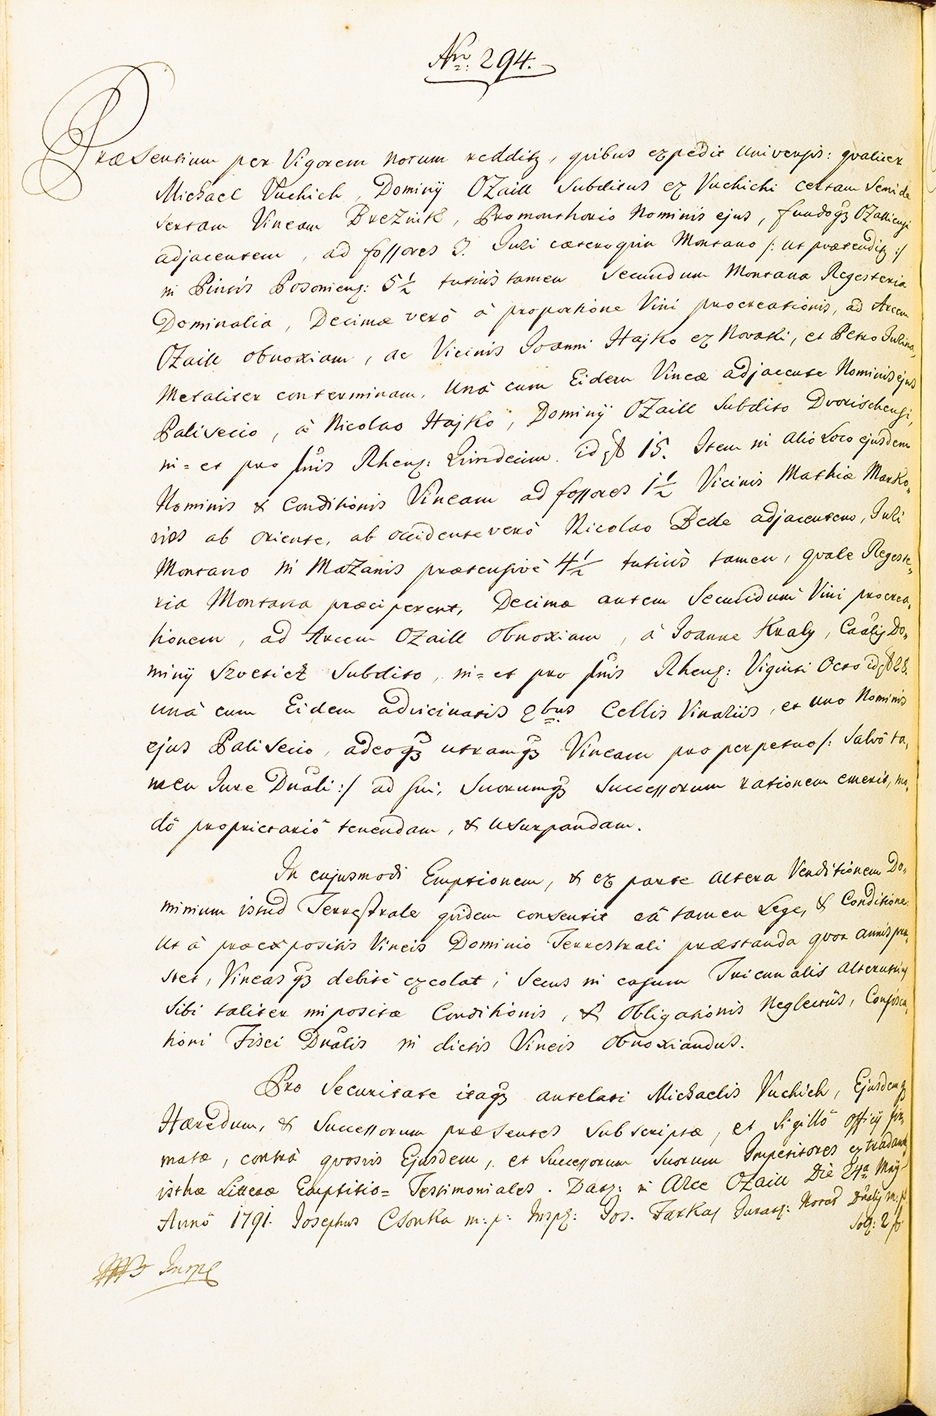 Nro: 294.
Præsentium per Vigorem notum redditq, quibus expedit universis: qvaliter
Michael Vuchich, Dominÿ Ozaill Subditus ex Vuchichi certam Semide
sertam Vineam Breznik, Promonthorio Nominis ejus, fundoq Ozalliensi
adjacentem, ad fossores 3. Juri cæteroqvin Montano /: ut prætenditq :/
in Pintis Posoniens: 5½ tutius tamen Secundum Montana Regesteria
Dominalia, Decimæ verò à proportione Vini procreationis, ad Arcem
Ozaill obnoxiam, ac Vicinis Joanni Hajko ex Novaki, et Petro
Metaliter conterminam, Unà cum Eidem Vineæ adjacente Nominis ejus
Palisecio, à Nicolao Hajko, Dominÿ Ozaill Subdito Dvorischensi,
in = et pro fnis Rhens: Qvindecim. id est 15. Item in alio Loco ejusdem
Nominis & Conditionis Vineam ad fossores 1½ Vicinis Mathiæ Marko=
ab oriente, ab occidente verò Nicolao Bede adjacentem, Juri
Montano in Mazanis prætensivè 4½ tutiùs tamen, quale Regeste=
ria Montana præciperent, Decimæ autem Secundum Vini procrea=
tionem, ad Arcem Ozaill obnoxiam, à Joanne Kraly, Do=
minÿ Szvetict Subdito, in = et pro fnis Rhens: Viginti Octo id est 28.
unà cum Eidem advicinatis 2bus Cellis Vinariis, et uno Nominis
ejus Palisecio, adeoq utramq Vineam pro perpetuo /: Salvô ta=
men Jure Dnali :/ ad sui, Suorumq Successorum rationem emerit, mo=
dô proprietariô tenendam, & usurpandam.
In cujusmodi Emptionem, & ex parte altera Venditionem Do=
minium istud Terrestrale qvidem consentit eâ tamen Lege, & Conditione
Ut à præexpositis Vineis Dominio Terrestrali præstanda qvot annis præ=
stet, Vineasq debitè excolat; Secus in casum Tricunalis alterutriq
Sibi taliter impositæ Conditionis, & Obligationis neglectûs, Confisca=
tioni Fisci Dnalis in dictis Vineis obnoxiandus.
Pro Securitate itaq antelati Michaelis Vuchich, Ejusdemq
Hæredum, & Successorum præsentes Subscriptæ, et Sigillô Officÿ fir=
matæ, contrà qvosvis Ejusdem, et Successorum Suorum Impetitores extradantur
isthæ Litteræ Emptitio = Testimoniales. Dats: in Arce Ozaill Die 24ta Maÿ
Annô 1791. Josephus Csonka m: p: Insp: Jos. Farkas Juras: Notar Dnalis m: p
Sol: 2 f
Insp